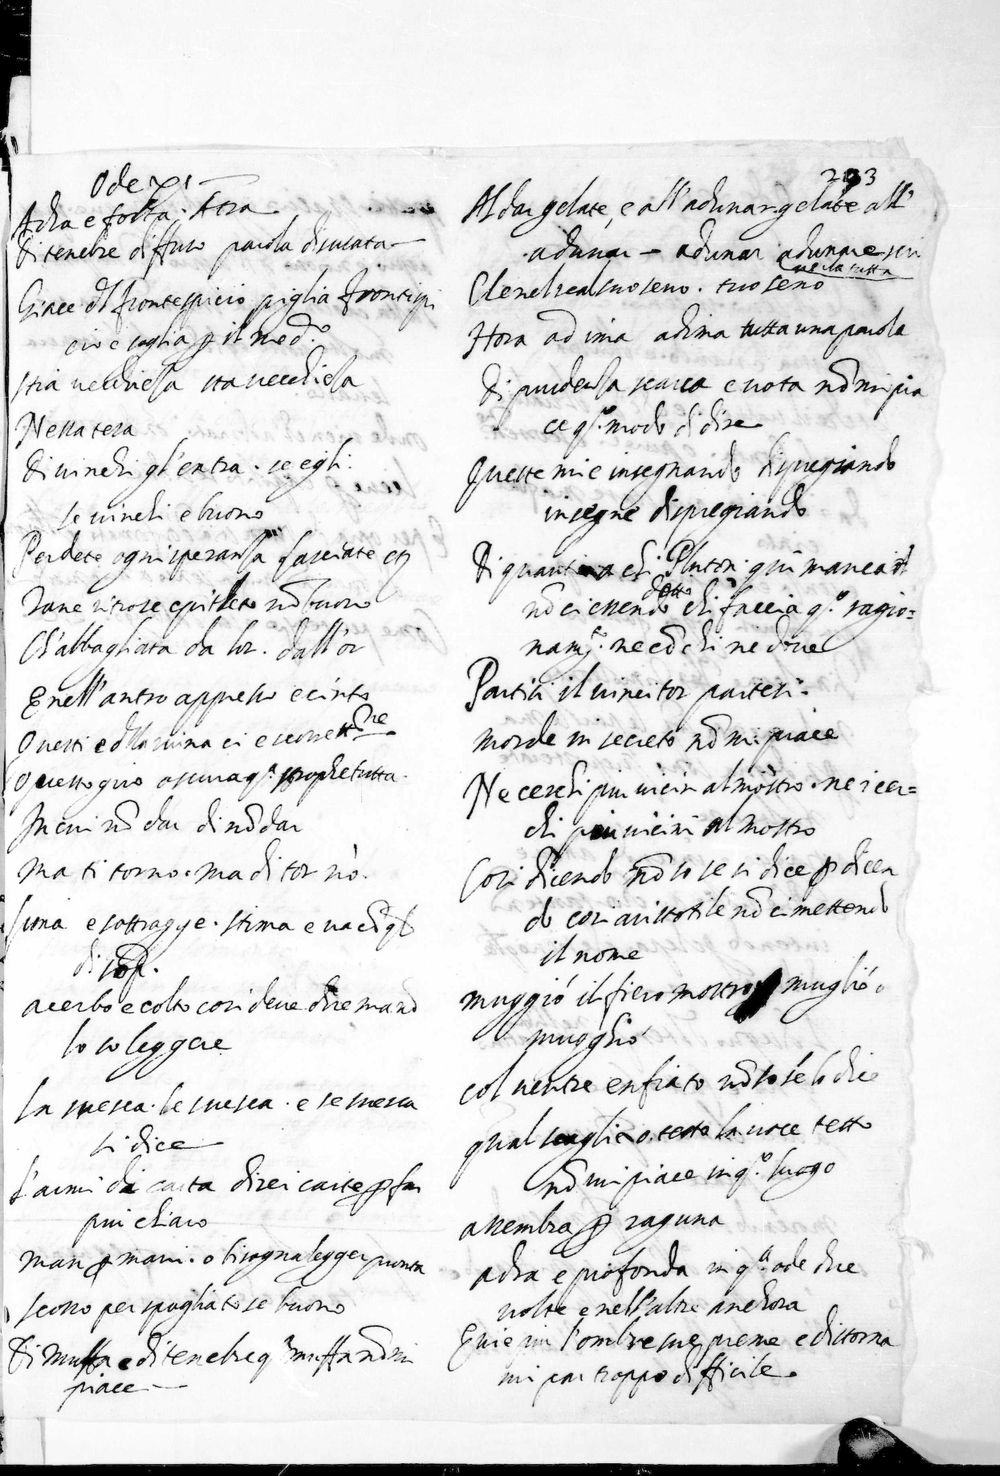 Ode XI
Adra e folta. Atra
di tenebre diffuso parola disusata
Giace dl frontespicio piglia frontispi
cio e soglia p il med.o
stia vecchiessa sta vecchiessa
Nella tera
di vinchi gl'entra. se egli.
se vinchi e buono
Perdete ogni speransa lasciate etc
Tane ritrose epitteto nō buono
Ch'abbagliata da lor. dall'or
E nell'antro appresso e cinto
Questi e dlla mina ci e scorrettne
Questo giro oscura q.a strophe tutta.
In cui nō dar di nō dar
ma ti torno. ma di tor nò.
e sottragge. stima e
di sop.
acerbo e colto così deve dire mand
lo so leggere
La mesca. le mesca. e se mesca
si dice
L'armi di carta direi carte p far
piu chiaro
man p mani. o bisogna legger
scorso per spogliato se buono
Di muffa e di tenebre q.a muffa nō mi
piace
203
Al dar gelate, e all'adunar gelate all'
adunar - adunar adunare seri
vesi la tutta
Che nel rea suo seno. tuo seno
Hora ad ima adima tutta una parola
Di prudensa scarca e vota nō mi pia
ce q.o modo di dire
Queste mi e insegnando dispregiando
insegne dispregiando
Di quanti a chi Pluton qui manca il
detto
nō ci essendo chi faccia q.o ragio=
nam.o ne cō chi ne dove
Partiti il vincitor partesi.
morde in secreto nō mi piace
Ne cerchi piu vicin al mostro. ne i cer=
chi piu vicini al mostro
Cosi dicendo nō so se si dice p dicen
do cosi aristotile nō ci mettendo
il nome
muggió il fiero mostro mugliò o
mugghiò
col ventre enfiato nō so se lo dice
qual scoglio o testo la voce testo
nō mi piace in q.o luogo
assembra p raguna
adra e profonda in q.a ode due
volte e nell'altre anchora
E vie piu l'ombre sue preme e distorna
mi par troppo difficile.